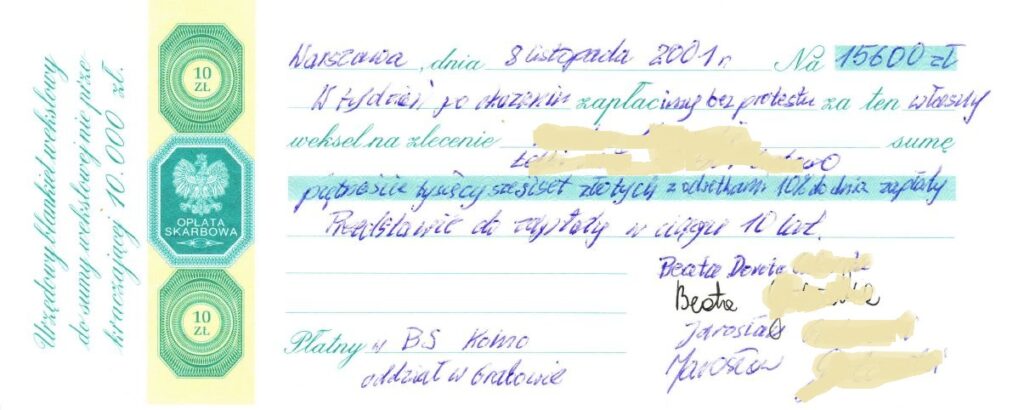 Urzędowy blankiet wekslowy
do sumy wekslowej nie prze-
kraczającej 10.000 zł.
10
ZŁ
OPŁATA
SKARBOWA
10
ZŁ
Warszawa, dnia 8 listopada 2001 r. Na 15600 zł
W tydzień po okazaniu zapłacimy bez protestu za ten własny
weksel na zlecenie sumę
piętnaście tysięcy sześciset złotych z odsetkami 10% do dnia zapłaty
Przedstawić do zapłaty w ciągu 10 lat.
Beata Dorota
Beata
Jarosław
Jarosław
Płatny w BS
oddział w